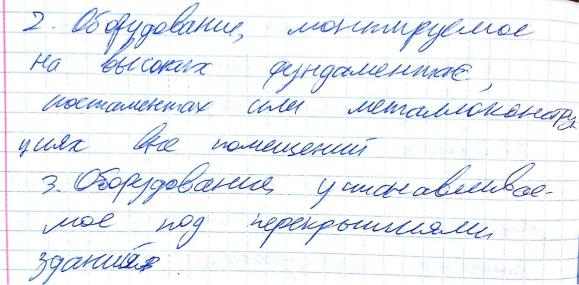 2. Оборудование, монтируемое
на высоких фундаментах,
постаментах или металлоконструк
циях вне помещений
3. Оборудование, устанавливае-
мое под перекрытиями
зданий